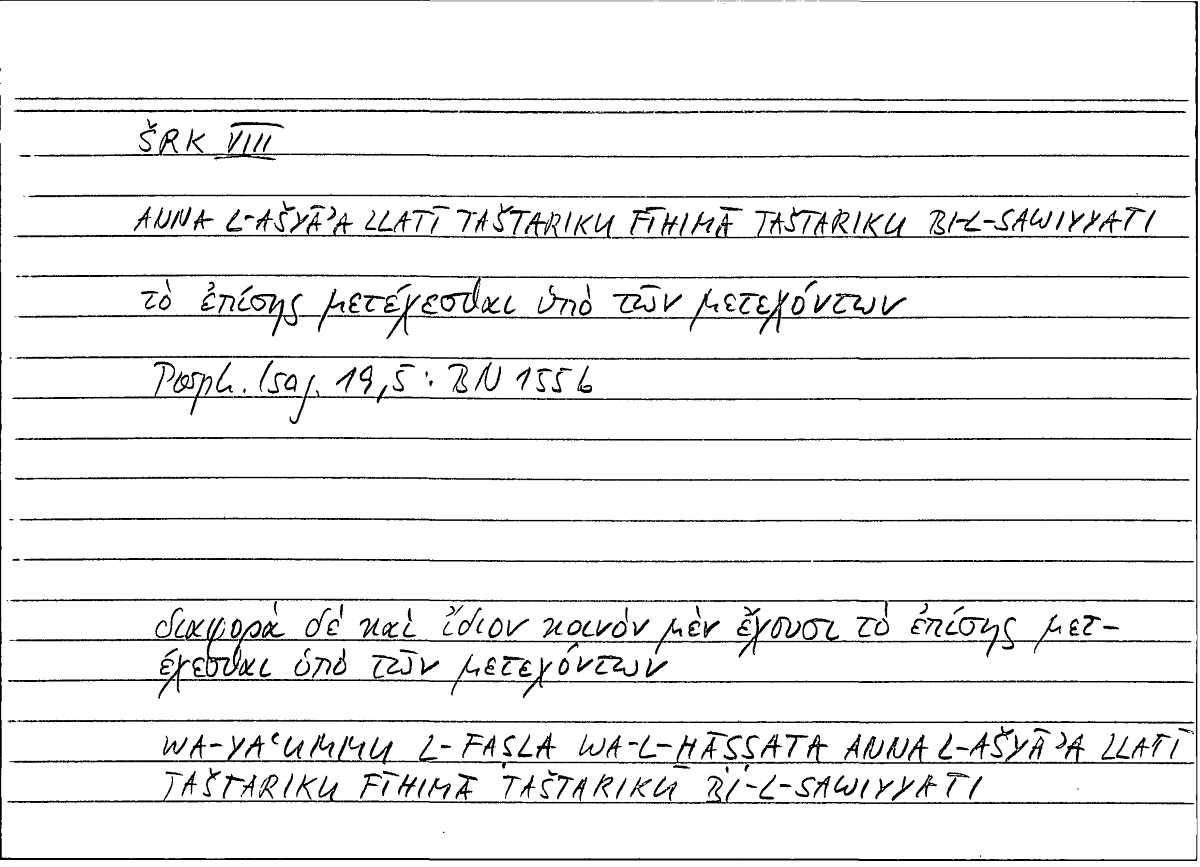 ŠRK VIII
ANNA L-AŠYĀʾA LLATĪ TAŠTARIKU FĪHIMĀ TAŠTARIKU BI-L-SAWIYYATI
τὸ ἐπίσης μετέχεσθαι ὑπὸ τῶν μετεχόντων
Porph. Isag. 19,5 : BN 155b
διαφορὰ δὲ καὶ ἴδιον κοινὸν μὲν ἔχουσι τὸ ἐπίσης μετ-
έχεσθαι ὑπὸ τῶν μετεχόντων
WA-YAʿUMMU L-FAṢLA WA-L-ḪĀṢṢATA ANNA L-AŠYĀʾA LLATĪ
TAŠTARIKU FĪHIMĀ TAŠTARIKU BI-L-SAWIYYATI